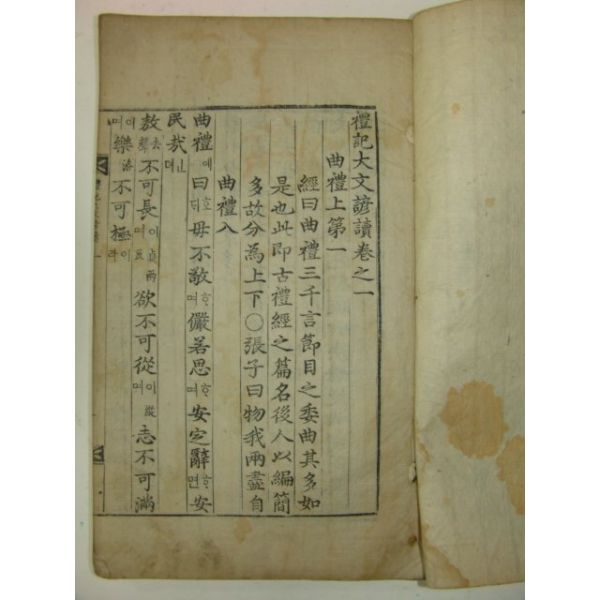 禮記大文諺讀卷之一
曲禮上第一
經曰曲禮三千言節目之委曲其多如
是也此即古禮經之篇名後人以編簡
多故分為上下○張子曰物我兩盡自
曲禮入
曲禮예曰호ᄃᆡ毋不敬ᄒᆞ며儼若思ᄒᆞ며安定辭ᄒᆞ면安
民哉ᄂᆞᆫ뎌
敖去聲不可長이며欲不可從이며縱志不可滿
이며樂洛不可極이라